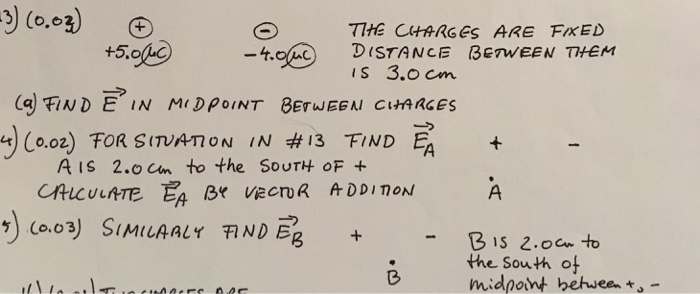 3) (0.03) + - THE CHARGES ARE FIXED
+5.0μC -4.0μC DISTANCE BETWEEN THEM
IS 3.0 cm
(a) FIND E IN MIDPOINT BETWEEN CHARGES
4) (0.02) FOR SITUATION IN #13 FIND E_A + -
A IS 2.0 cm to the SOUTH OF +
CALCULATE E_A BY VECTOR ADDITION A
5) (0.03) SIMILARLY FIND E_B + - B IS 2.0 cm to
the South of
B midpoint between +, -